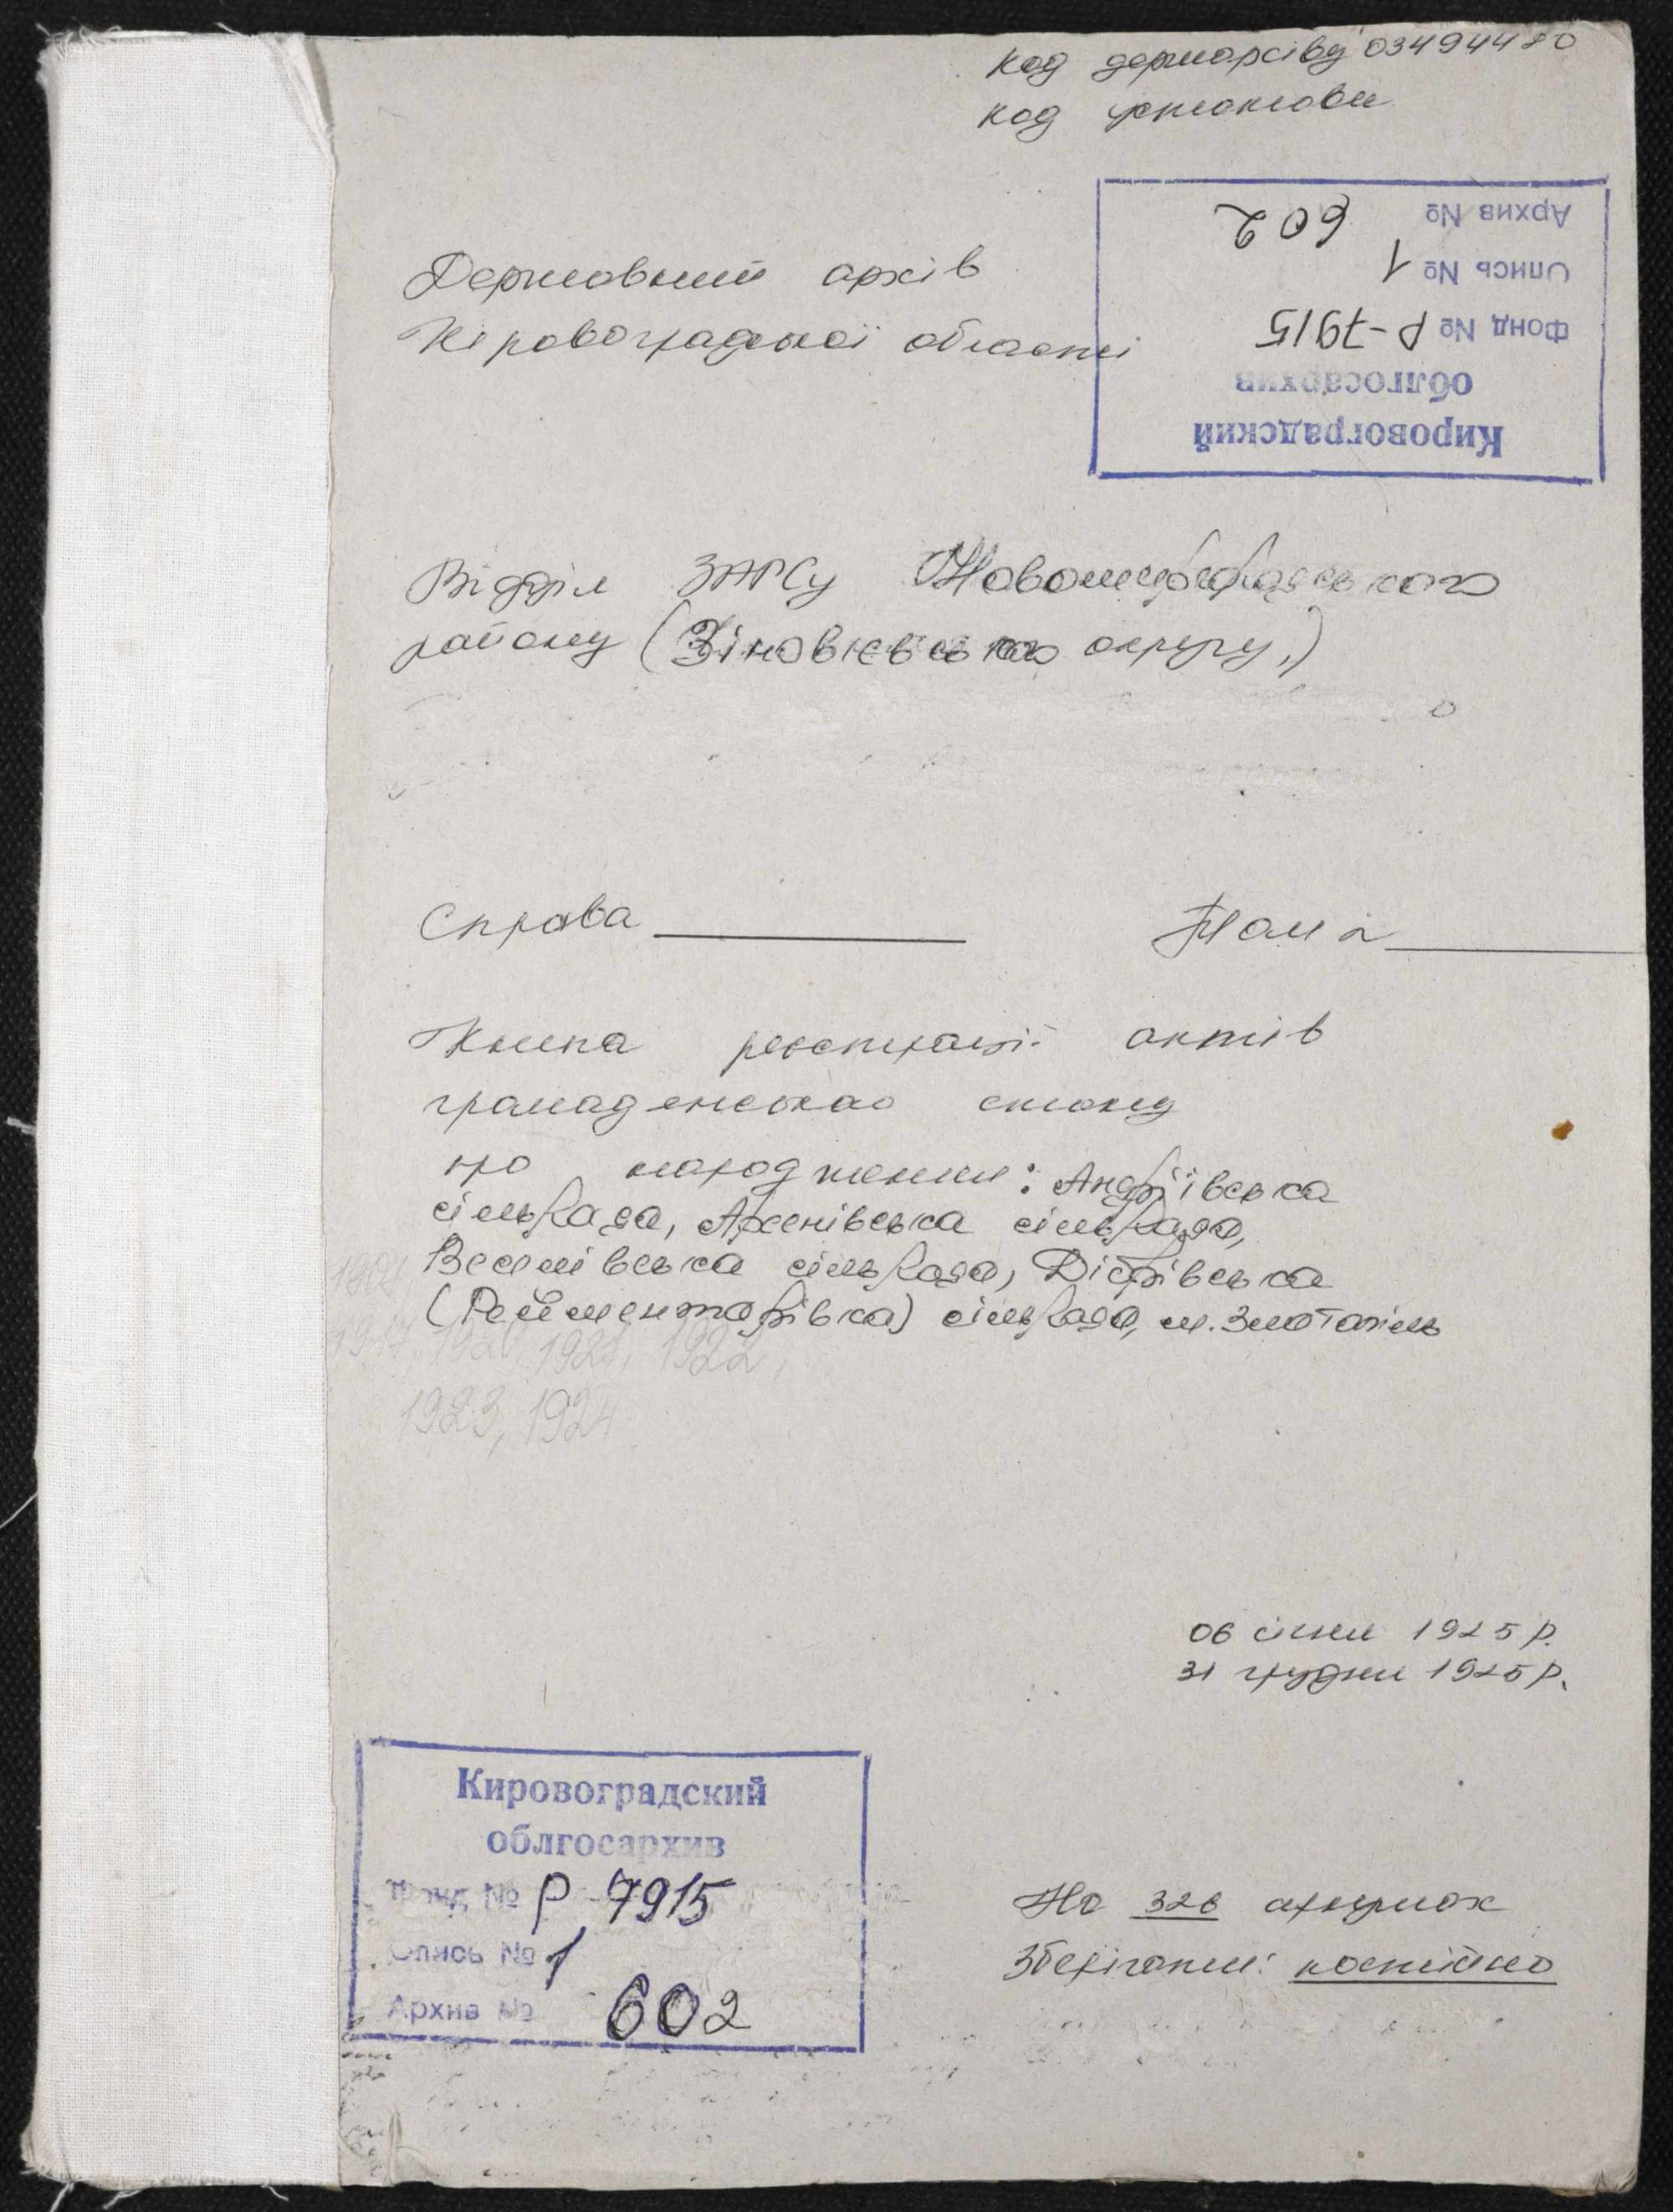 код держархіву 03494480
код установи
Архив № 602
Опись № 1
Фонд № Р-7915
облгосархив
Кировоградский
Державний архів
Кіровоградської області
Відділ ЗАГСу Новомиргородського
району (Зінов'євського округу,)
Справа
Том 2
Книга реєстрації актів
громадянського стану
про народження: Андріївська
сільрада, Арсенівська сільрада,
Веселівська сільрада, Дібрівська
(Рейментарівка) сільрада, м. Златопіль
1917, 1920, 1921, 1922,
1923, 1924
06 січня 1925 р.
31 грудня 1925 р.
Кировоградский
облгосархив
Фонд № Р-7915
Опись № 1
Архив № 602
На 326 аркушах
Зберігати: постійно